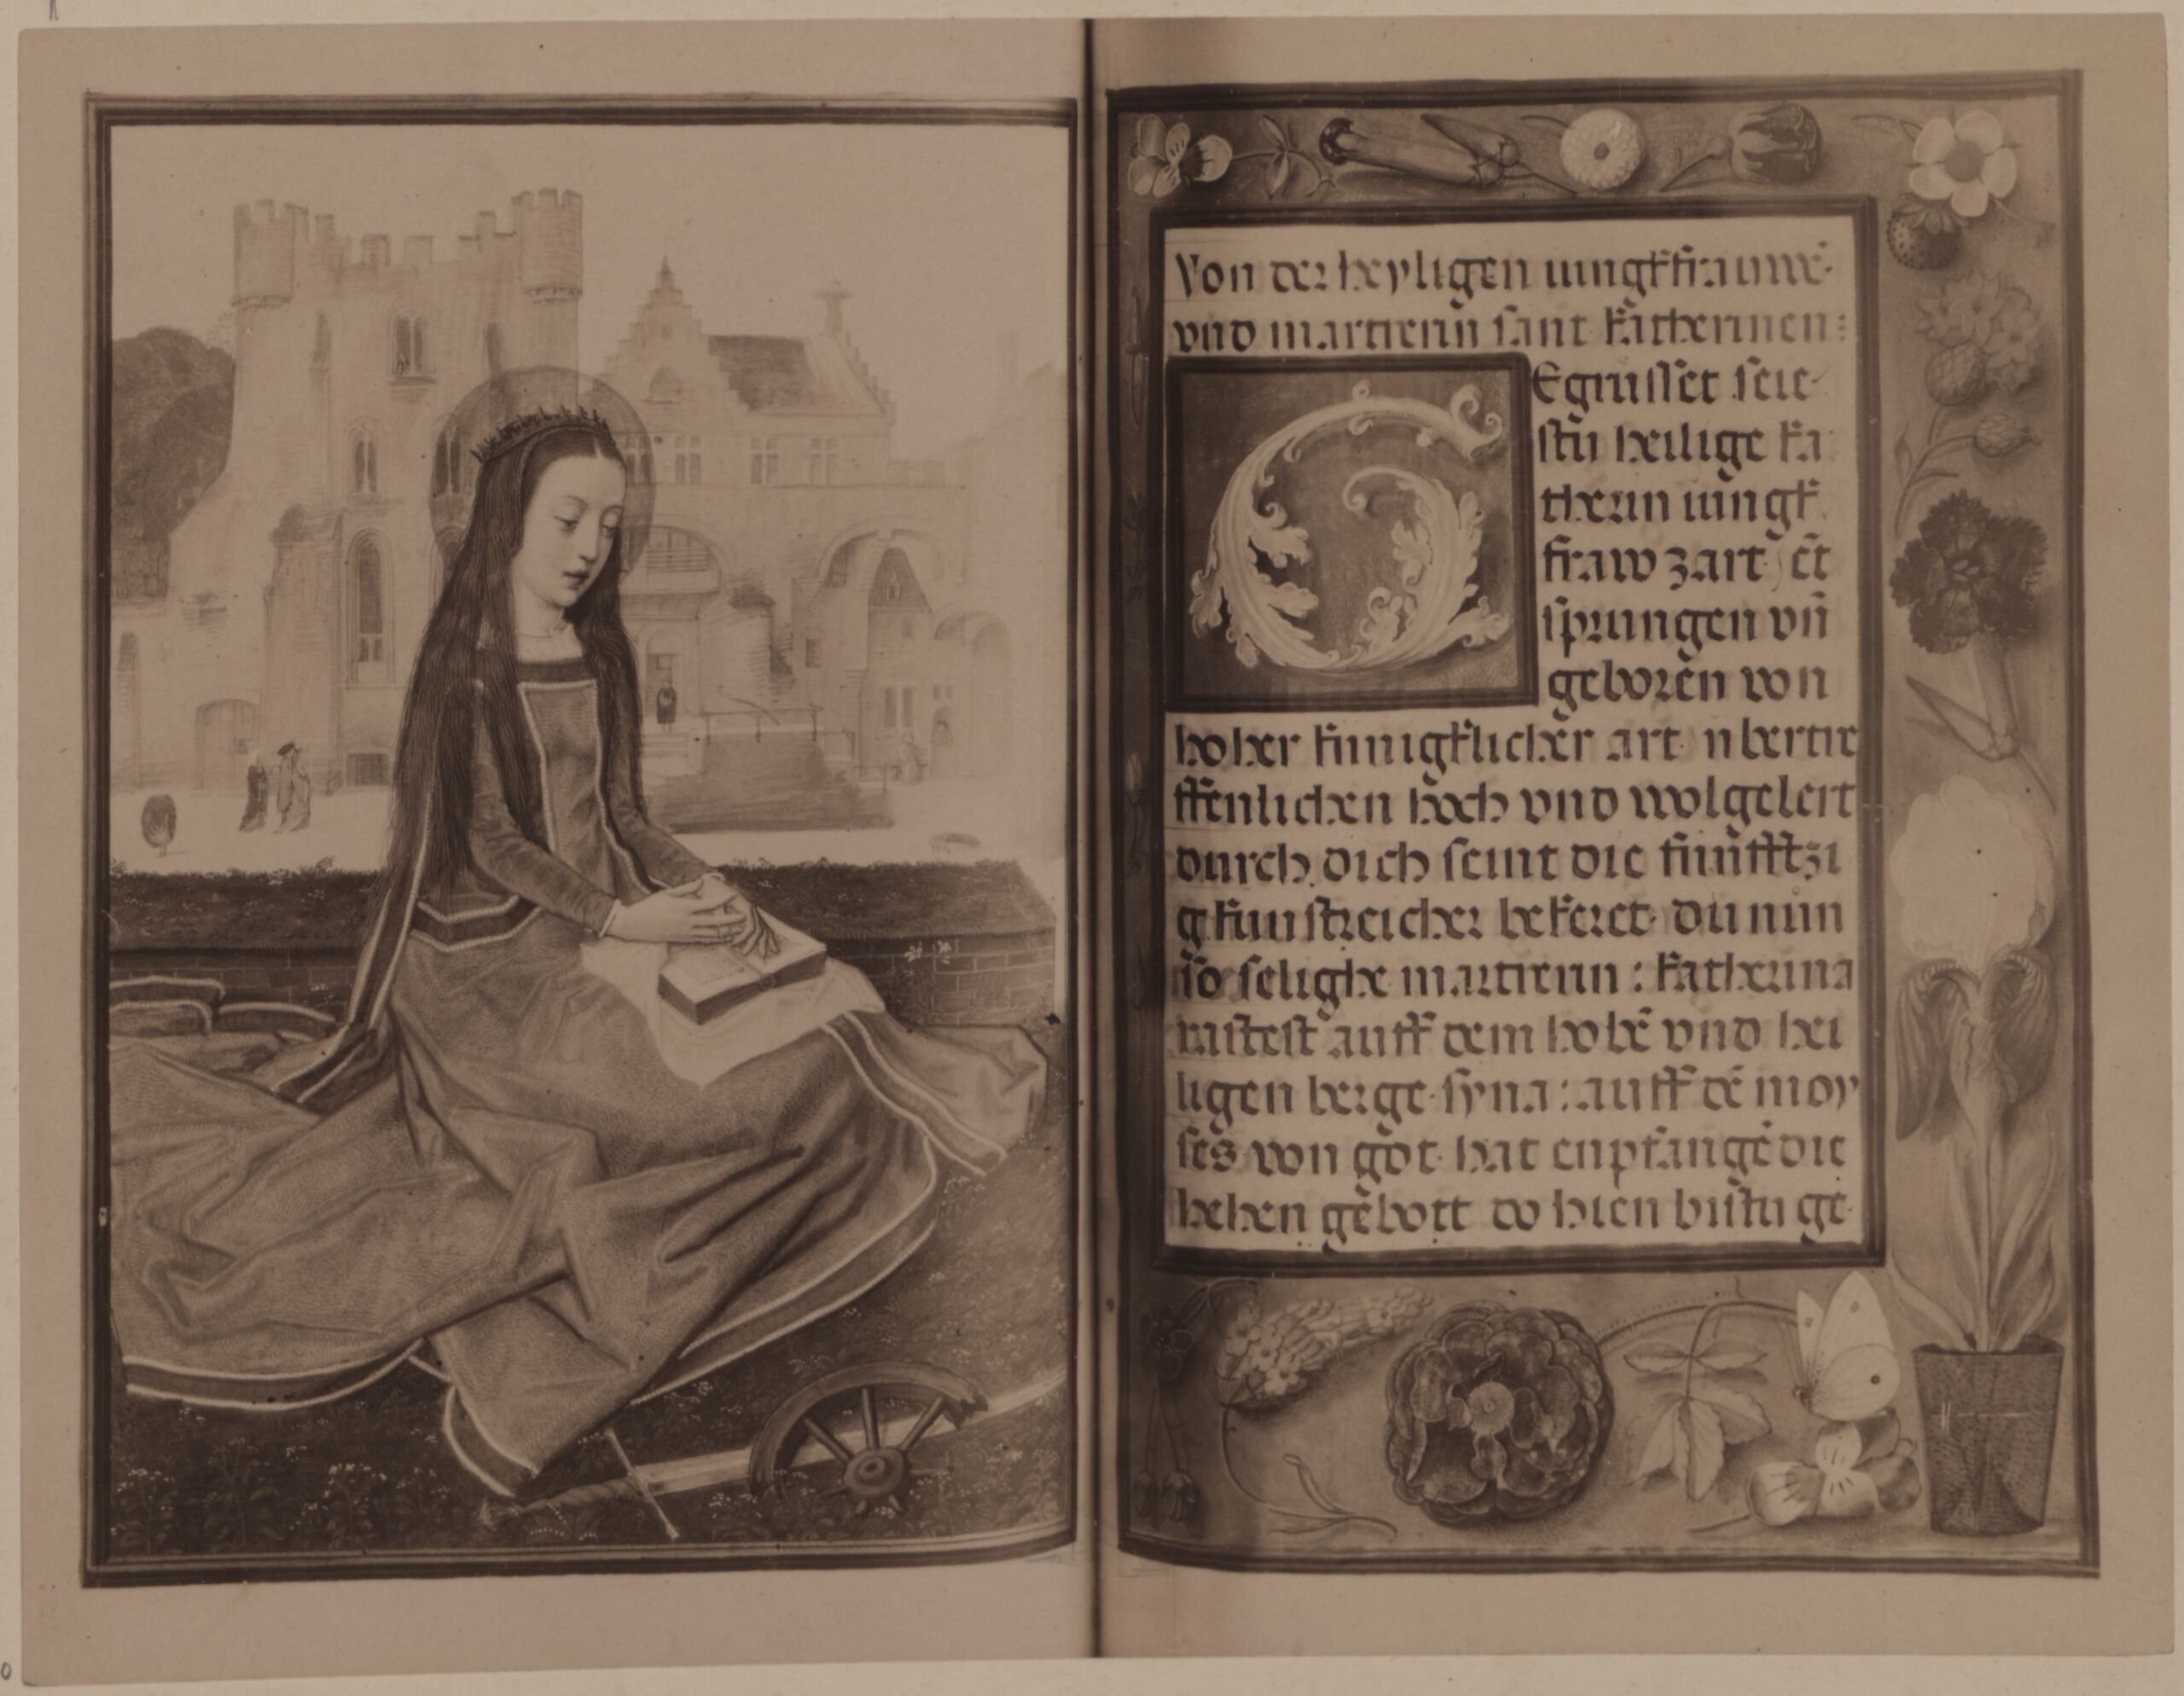 Von der heyligen iungkfrauwē·
vnd martrerin sant katherinen:
GEgrüsset seie
stu heilige ka
therin iungk
fraw zart et
sprungen vn̄
geboren von
hoher künigklicher art n bertre
ffenlichen hoch vnd wolgelert
durch dich seint die fünfftzi
g kunstreicher bekeret· du nun
so selighe martrerin : katherina
rastest auff dem hohē vnd hei
ligen berge· syna : auff dē moy
ses von got· hat enpfangē die
hehen gebott do hien bistu ge·